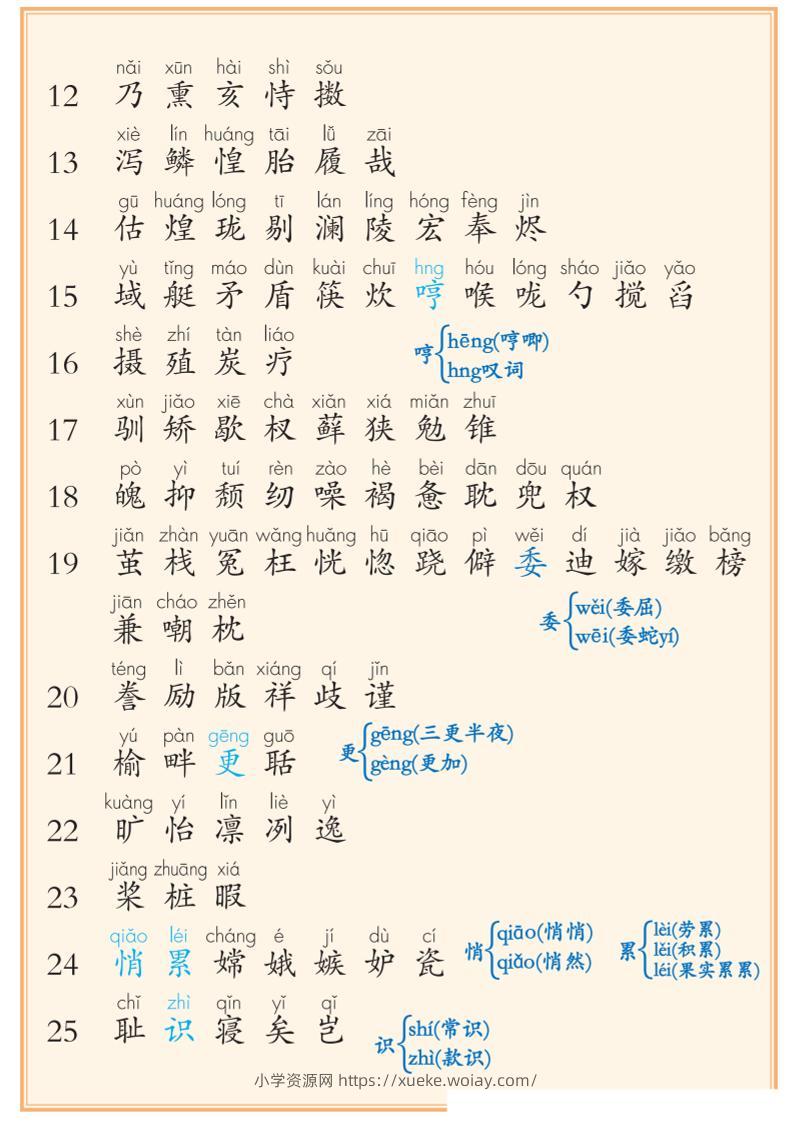 nǎi xūn hài shì sǒu
12 乃 熏 亥 恃 擞
xiè lín huáng tāi lǚ zāi
13 泻 鳞 惶 胎 履 哉
gū huáng lóng tī lán líng hóng fèng jìn
14 估 煌 珑 剔 澜 陵 宏 奉 烬
yù tǐng máo dùn kuài chuī hng hóu lóng sháo jiǎo yǎo
15 域 艇 矛 盾 筷 炊 哼 喉 咙 勺 搅 舀
shè zhí tàn liáo
16 摄 殖 炭 疗
哼 hēng(哼唧)
hng叹词
xùn jiǎo xiē chà xiǎn xiá miǎn zhuī
17 驯 矫 歇 杈 藓 狭 勉 锥
pò yì tuí rèn zào hè bèi dān dōu quán
18 魄 抑 颓 纫 噪 褐 惫 耽 兜 权
jiǎn zhàn yuān wǎng huǎng hū qiāo pì wěi dí jià jiǎo bǎng
19 茧 栈 冤 枉 恍 惚 跷 僻 委 迪 嫁 缴 榜
jiān cháo zhěn
兼 嘲 枕
委 wěi(委屈)
wēi(委蛇yí)
téng lì bǎn xiáng qí jǐn
20 誊 励 版 祥 歧 谨
yú pàn gēng guō
21 榆 畔 更 聒
更 gēng(三更半夜)
gèng(更加)
kuàng yí lǐn liè yì
22 旷 怡 凛 冽 逸
jiǎng zhuāng xiá
23 桨 桩 暇
qiǎo léi cháng é jí dù cí
24 悄 累 嫦 娥 嫉 妒 瓷
悄 qiāo(悄悄)
qiǎo(悄然)
累 lèi(劳累)
lěi(积累)
léi(果实累累)
chǐ zhì qǐn yǐ qǐ
25 耻 识 寝 矣 岂
识 shí(常识)
zhì(款识)
小学资源网 https://xueke.woiay.com/